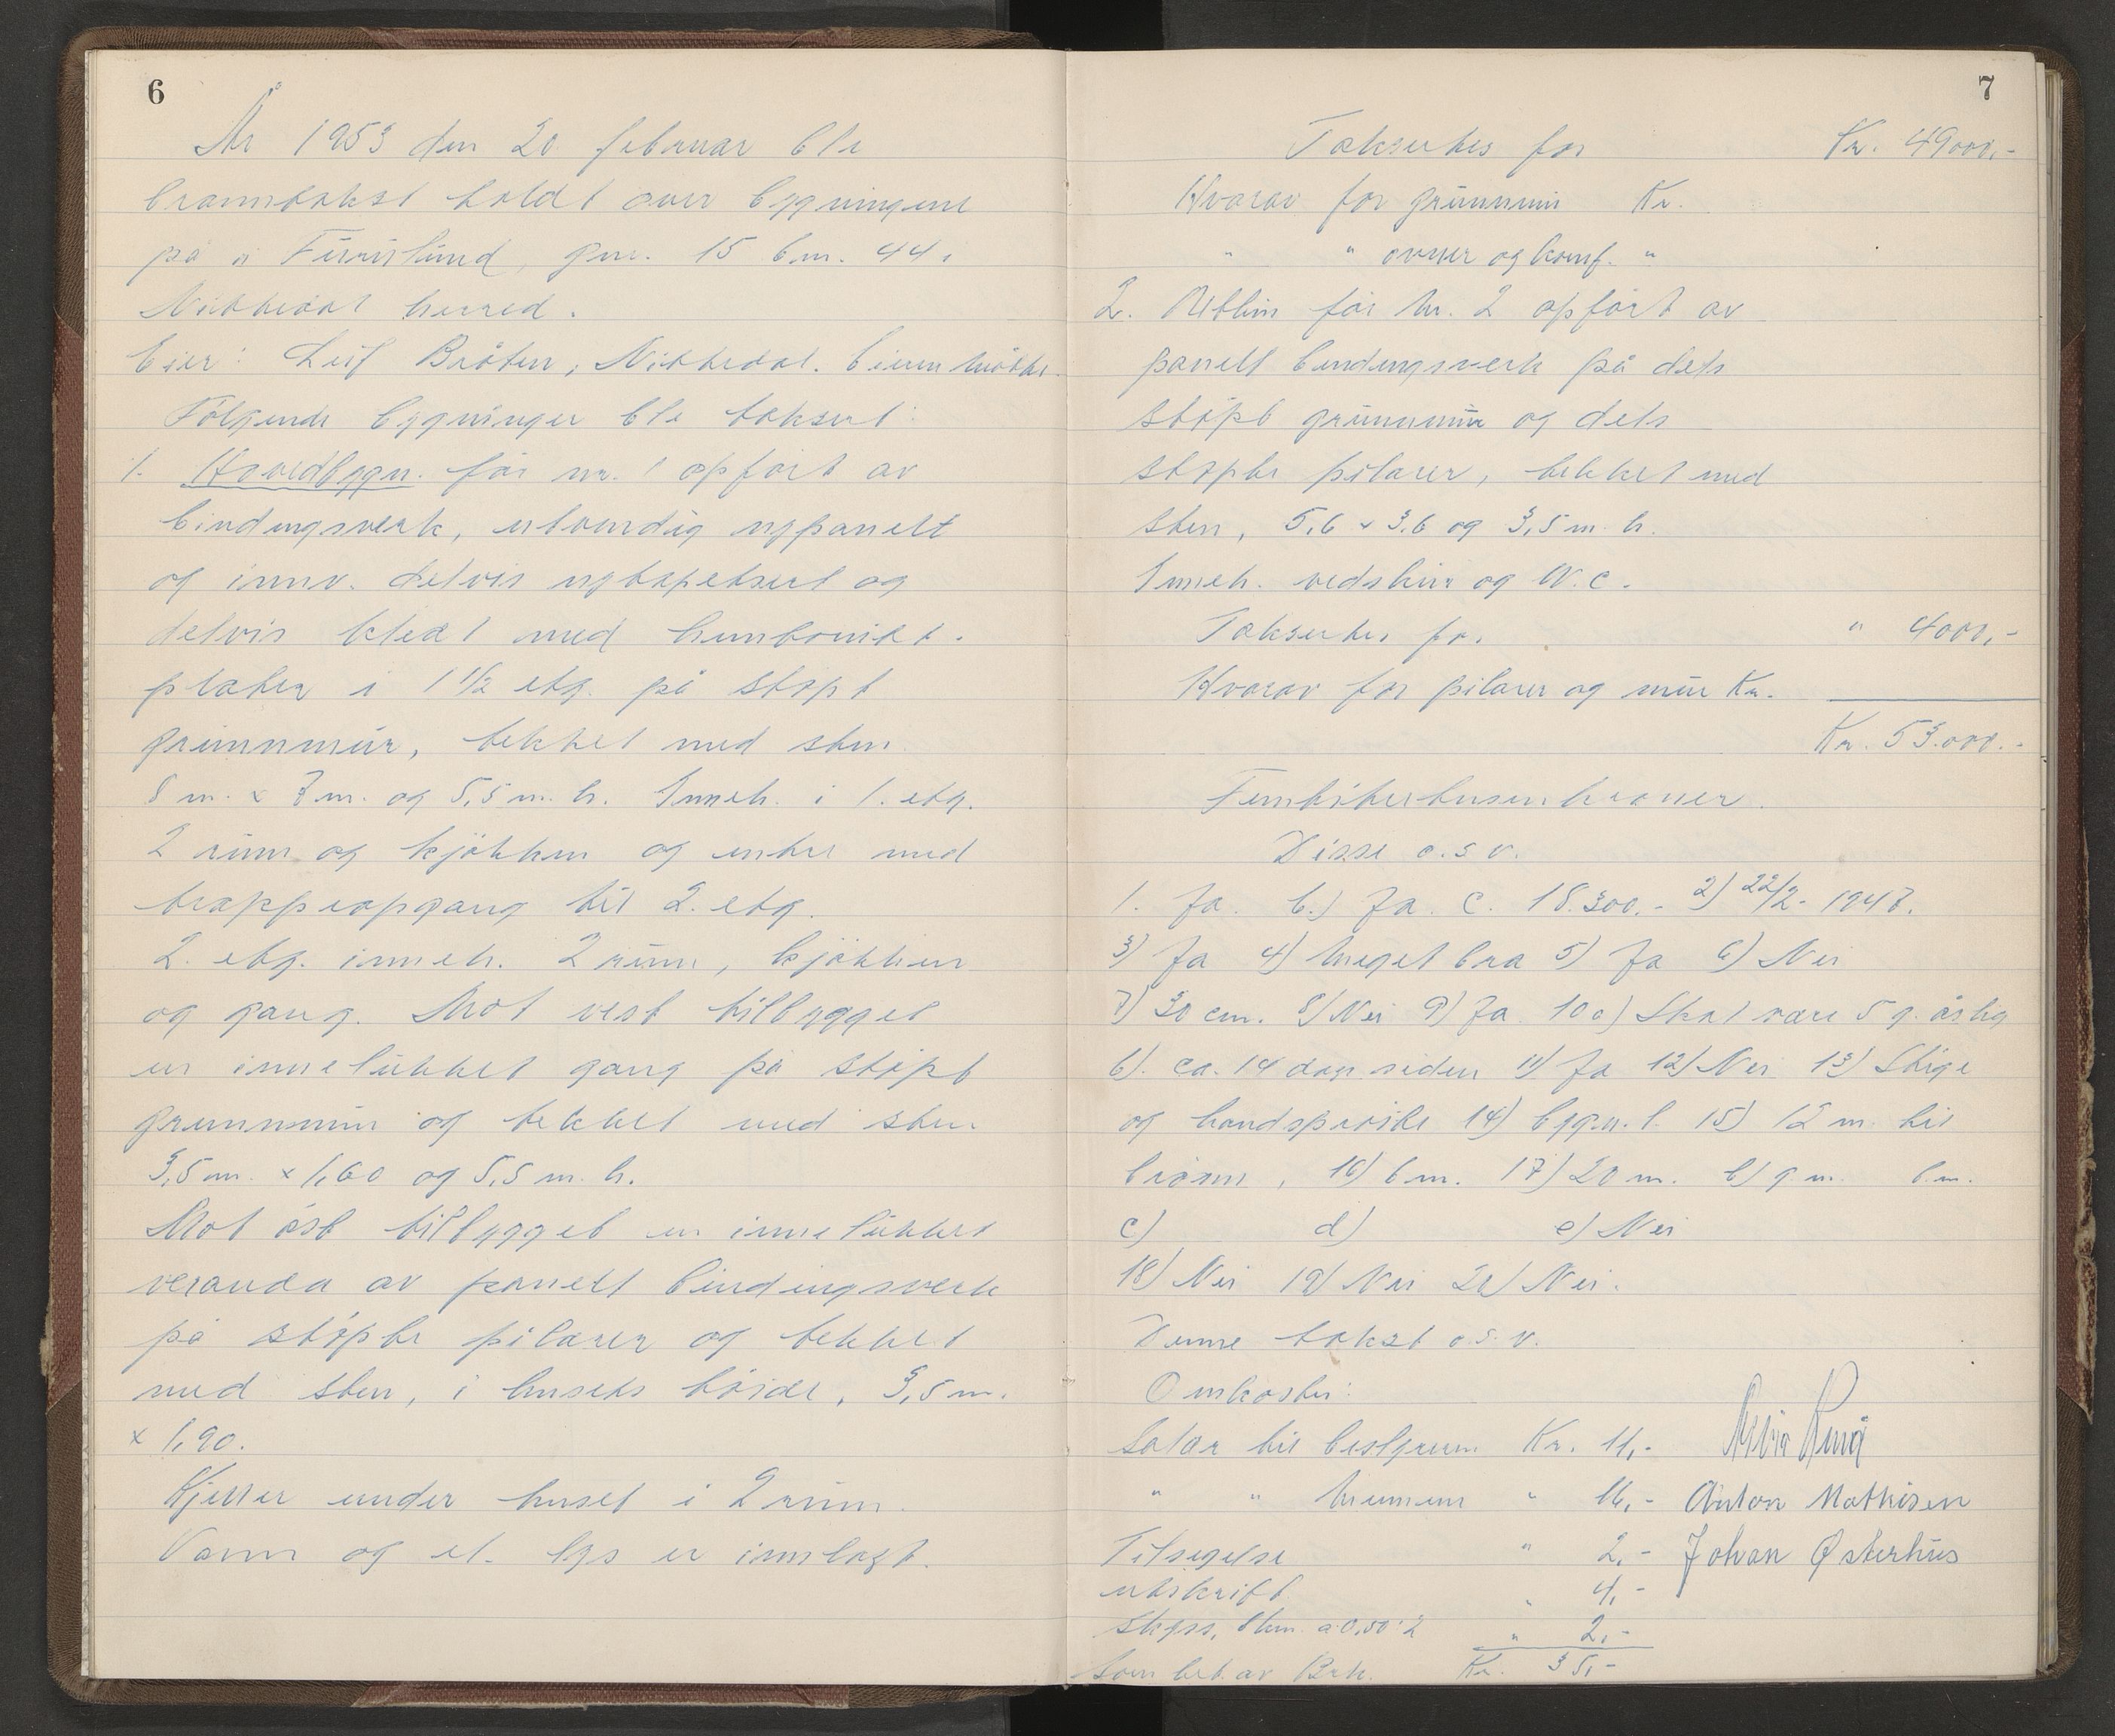 6
År 1953 den 20. februar ble
branntakst holdt over bygningene
på Furuslund, gnr. 15 bnr. 44 i
Nittedal herred.
Eier: Leif Bråten, Nittedal. Eieren møtte.
Følgende bygninger ble taksert:
1. Hovedbygn. før nr. 1 opført av
bindingsverk, utvendig nypanelt
og innv. delvis nytapetsert og
delvis kledt med huntonitt.
plater i 1 1/2 etg. på støpt
grunnmur, tekket med sten
8 m. x 7 m. og 5,5 m. h. Inneh. i 1. etg.
2 rum og kjøkken og entre med
trappeopgang til 2. etg.
2. etg. inneh. 2 rum, kjøkken
og gang. Mot vest tilbygget
en innelukket gang på støpt
grunnmur og tekket med sten
3,5 m. x 1,60 og 5,5 m. h.
Mot øst tilbygget en innelukket
veranda av panelt bindingsverk
på støpte pilarer og tekket
med sten, i husets høide, 3,5 m.
x 1,90.
Kjeller under huset i 2 rum.
Vann og el. lys er innlagt.
7
Takseres for Kr. 49000,-
Hvorav for grunnmur Kr.
" " ovner og komf. "
2. Uthus før nr. 2 opført av
panelt bindingsverk på dels
støpt grunnmur og dels
støpte pilarer, tekket med
sten, 5,6 x 3,6 og 3,5 m. h.
Inneh. vedskur og W.C.
Takseres for " 4000,-
Hvorav for pilarer og mur Kr.
Kr. 53.000.-
Femtitretusen kroner.
Disse o.s.v.
1. Ja. b.) Ja. c. 18.300.- 2) 22/2- 1947.
3) Ja 4) Meget bra 5) Ja 6) Nei
7) 30 cm. 8) Nei 9) Ja 10 a) Skal være 5 g. årlig
b). ca. 14 dager siden 11) Ja 12) Nei 13) Stige
og handsprøite 14) bygn. 1. 15) 12 m. til
brønn, 16) 6 m. 17) 20 m. b) g.m. b.m.
c) d) e) Nei
18) Nei 19) Nei 20) Nei.
Denne takst o.s.v.
Omkostn:
Salær til bestyreren Kr. 11,-
" " mennene " 16,- Anton Mathisen
Tilsigelse " 2,- Johan Østerhus
utskrift " 4,-
Skyss, 4 km. a 0,50: 2 " 2,-
Som bet. av Brk. Kr. 35,-